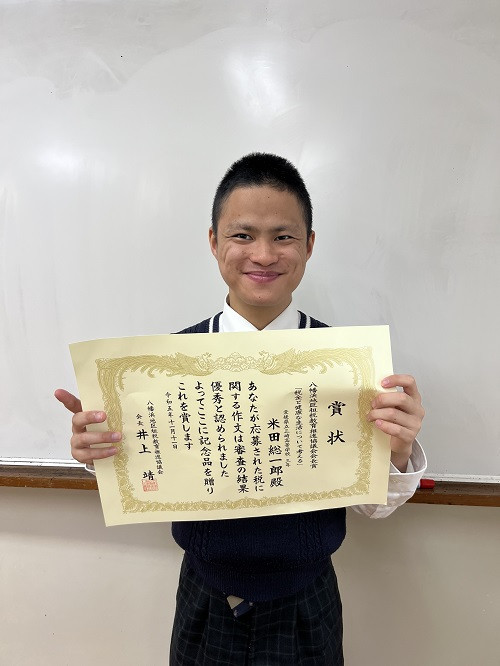 賞状
八幡浜地区租税教育推進協議会会長賞
「税金と健康な生活について考える」
愛媛県立三崎高等学校 三年
米田総一郎殿
あなたが応募された税に
関する作文は審査の結果
優秀と認められました
よってここに記念品を贈り
これを賞します
令和五年十一月十一日
八幡浜地区租税教育推進協議会
会長 井上 靖